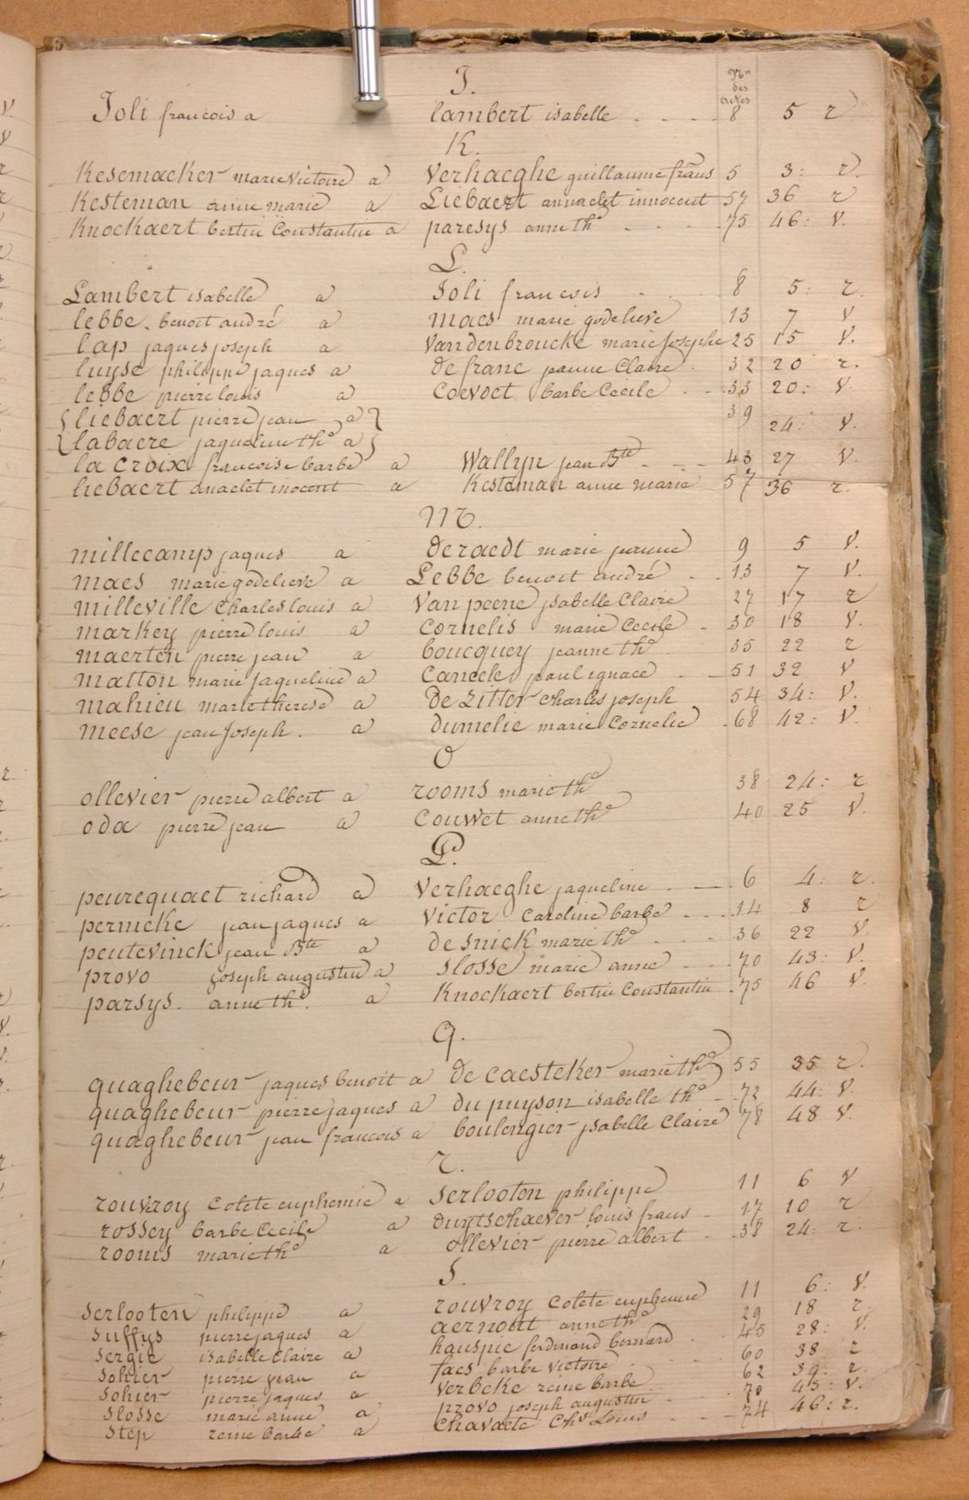 J.
Nos des actes
Joli francois a lambert isabelle 8 5 r
K.
Kesemaeker marie victoire a Verhaeghe guillaume frans 5 3: r.
Kesteman anne marie a Liebaert annaclet innocent 57 36 r
Knockaert bertin Constantin a paresys anne th.e 75 46: v.
L.
Lambert isabelle a Joli francois 8 5: r.
lebbe benoit andré a maes marie godelieve 13 7 v
lap jaques joseph a Vandenbroucke marie Josephe 25 15 v.
luyse philippe jaques a de franc Claire 32 20 r.
lebbe pierre louis a Coevoet barbe Cecile 33 20: v.
{ liebaert pierre jean a } 39 24: v.
{ labaere jaqueline th.e a }
la Croix francoise barbe a Wallyn jean Bte 43 27 v.
liebaert anaclet inocent a Kesteman anne marie 57 36 r.
M.
millecamp jaques a deraedt marie 9 5 v.
maes marie godelieve a Lebbe benoit andré 13 7 v.
milleville Charles louis a Van peene ysabelle Claire 27 17 r
markey pierre louis a Cornelis marie Cecile 30 18 v.
maerten pierre jean a boucquey jeanne th.e 35 22 r
matton marie jaqueline a Caneele paul ignace 51 32 v
mahieu marie therese a De Zitter Charles joseph 54 34: v.
meese jean Joseph. a Dumelie marie Cornelie 68 42: v.
O
ollevier pierre albert a rooms marie th.e 38 24: r
oda pierre jean a Couwet anne th.e 40 25 v.
P.
peurequaet richard a Verhaeghe jaqueline 6 4: r.
perneke jean jaques a Victor Caroline barbe 14 8 r
peutevinck jean Bte a de snick marie th.e 36 22 v.
provo joseph augustin a Slosse marie anne 70 43: v.
parsys. anne th.e a Knockaert bertin Constantin 75 46 v.
q.
quaghebeur jaques benoit a de Caesteker marie th.e 55 35 r.
quaghebeur pierre jaques a du puyson isabelle th.e 72 44: v.
quaghebeur jean francois a boulengier ysabelle Claire 78 48 v.
r.
rouvroy Colete euphemie a Serlooten philippe 11 6 v
rossey barbe Cecile a duytschaever louis frans 17 10 r
rooms marie th.e a ollevier pierre albert 38 24: r.
S.
Serlooten philippe a rouvroy Colete euphemie 11 6: v.
Suffys pierre jaques a aernout anne th.e 29 18 r.
Sergie isabelle Claire a hauspie ferdinand bernard 45 28: v.
Sohier pierre jean a faes barbe victoire 60 38: r
Sohier pierre jaques a Verbeke reine barbe 62 39: r.
Slosse marie anne a provo joseph augustin 70 43: v.
Step reine barbe a Chavaete Chs Louis 74 46: r.